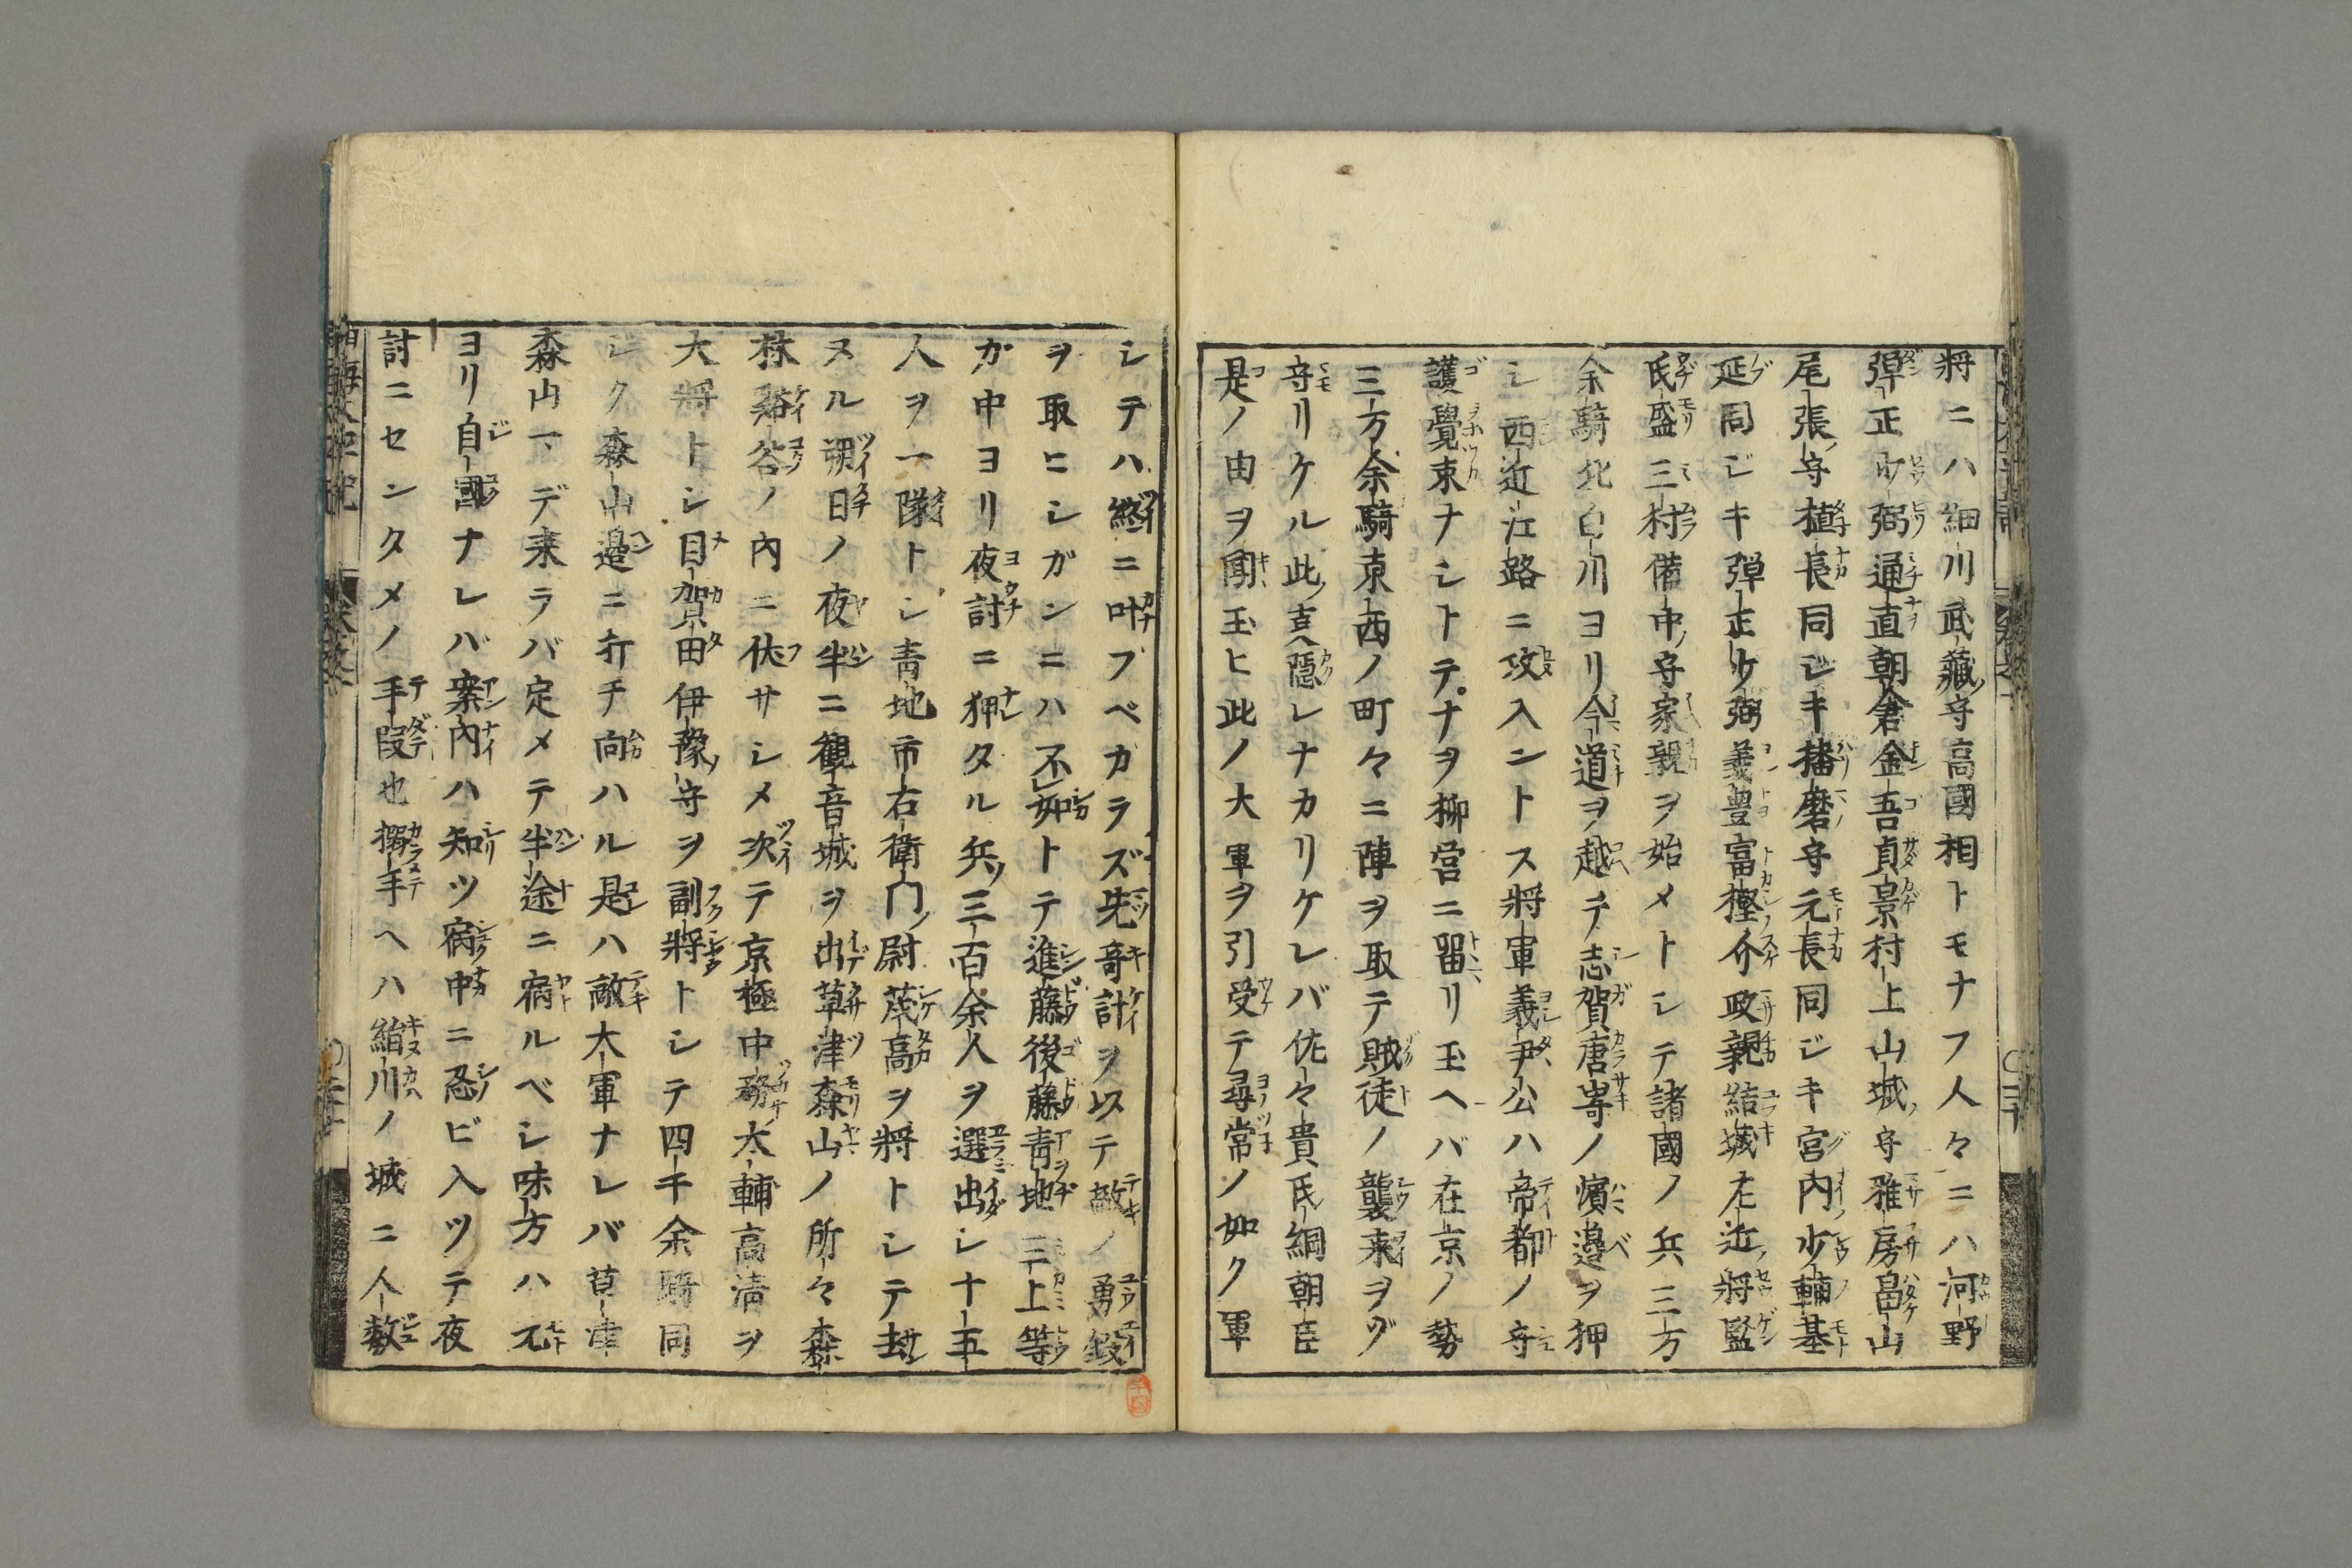 將ニハ細川武藏守高國相トモナフ人々ニハ河野
彈正少弼通直朝倉金吾貞景村上山城守雅房畠山
尾張守植長同ジキ播磨守元長同ジキ宮内少輔基
延同ジキ彈正少弼義豊富樫介政親結城左近將監
氏盛三村備中守家親ヲ始メトシテ諸國ノ兵三万
余騎北白川ヨリ今道ヲ越テ志賀唐崎ノ濱邊ヲ押
シ西近江路ニ攻入ントス將軍義尹公ハ帝都ノ守
護覺束ナシトテナヲ柳宮ニ留リ玉ヘバ在京ノ勢
三万余騎東西ノ町々ニ陣ヲ取テ賊徒ノ襲来ヲゾ
守リケル此ノ隱レナカリケレバ佐々貴氏綱朝臣
是ノ由ヲ聞玉ヒ此ノ大軍ヲ引受テ尋常ノ如ク軍
シテハ終ニ叶フベカラズ先奇計ヲ以テ敵ノ勇鋭
ヲ取ヒシガンニハ不如トテ進藤後藤青地三上等
ガ中ヨリ夜討ニ狎タル兵三百余人ヲ選出シ十五
人ヲ一隊トシ青地市右衛門尉茂高ヲ將トシテ劫
ヌル朔日ノ夜半ニ観音城ヲ出草津森山ノ所々森
林谿谷ノ内ニ伏サシメ次テ京極中務太輔高清ヲ
大將トシ目賀田伊豫守ヲ副將トシテ四千余騎同
シク森山邉ニ打チ向ハル是ハ敵大軍ナレバ草津
森山マデ来ラバ定メテ半途ニ宿ルベシ味方ハ元
ヨリ自國ナレバ案内ハ知ツ宿中ニ忍ビ入ツテ夜
討ニセンタメノ手段也搦手ヘハ絹川ノ城ニ人数